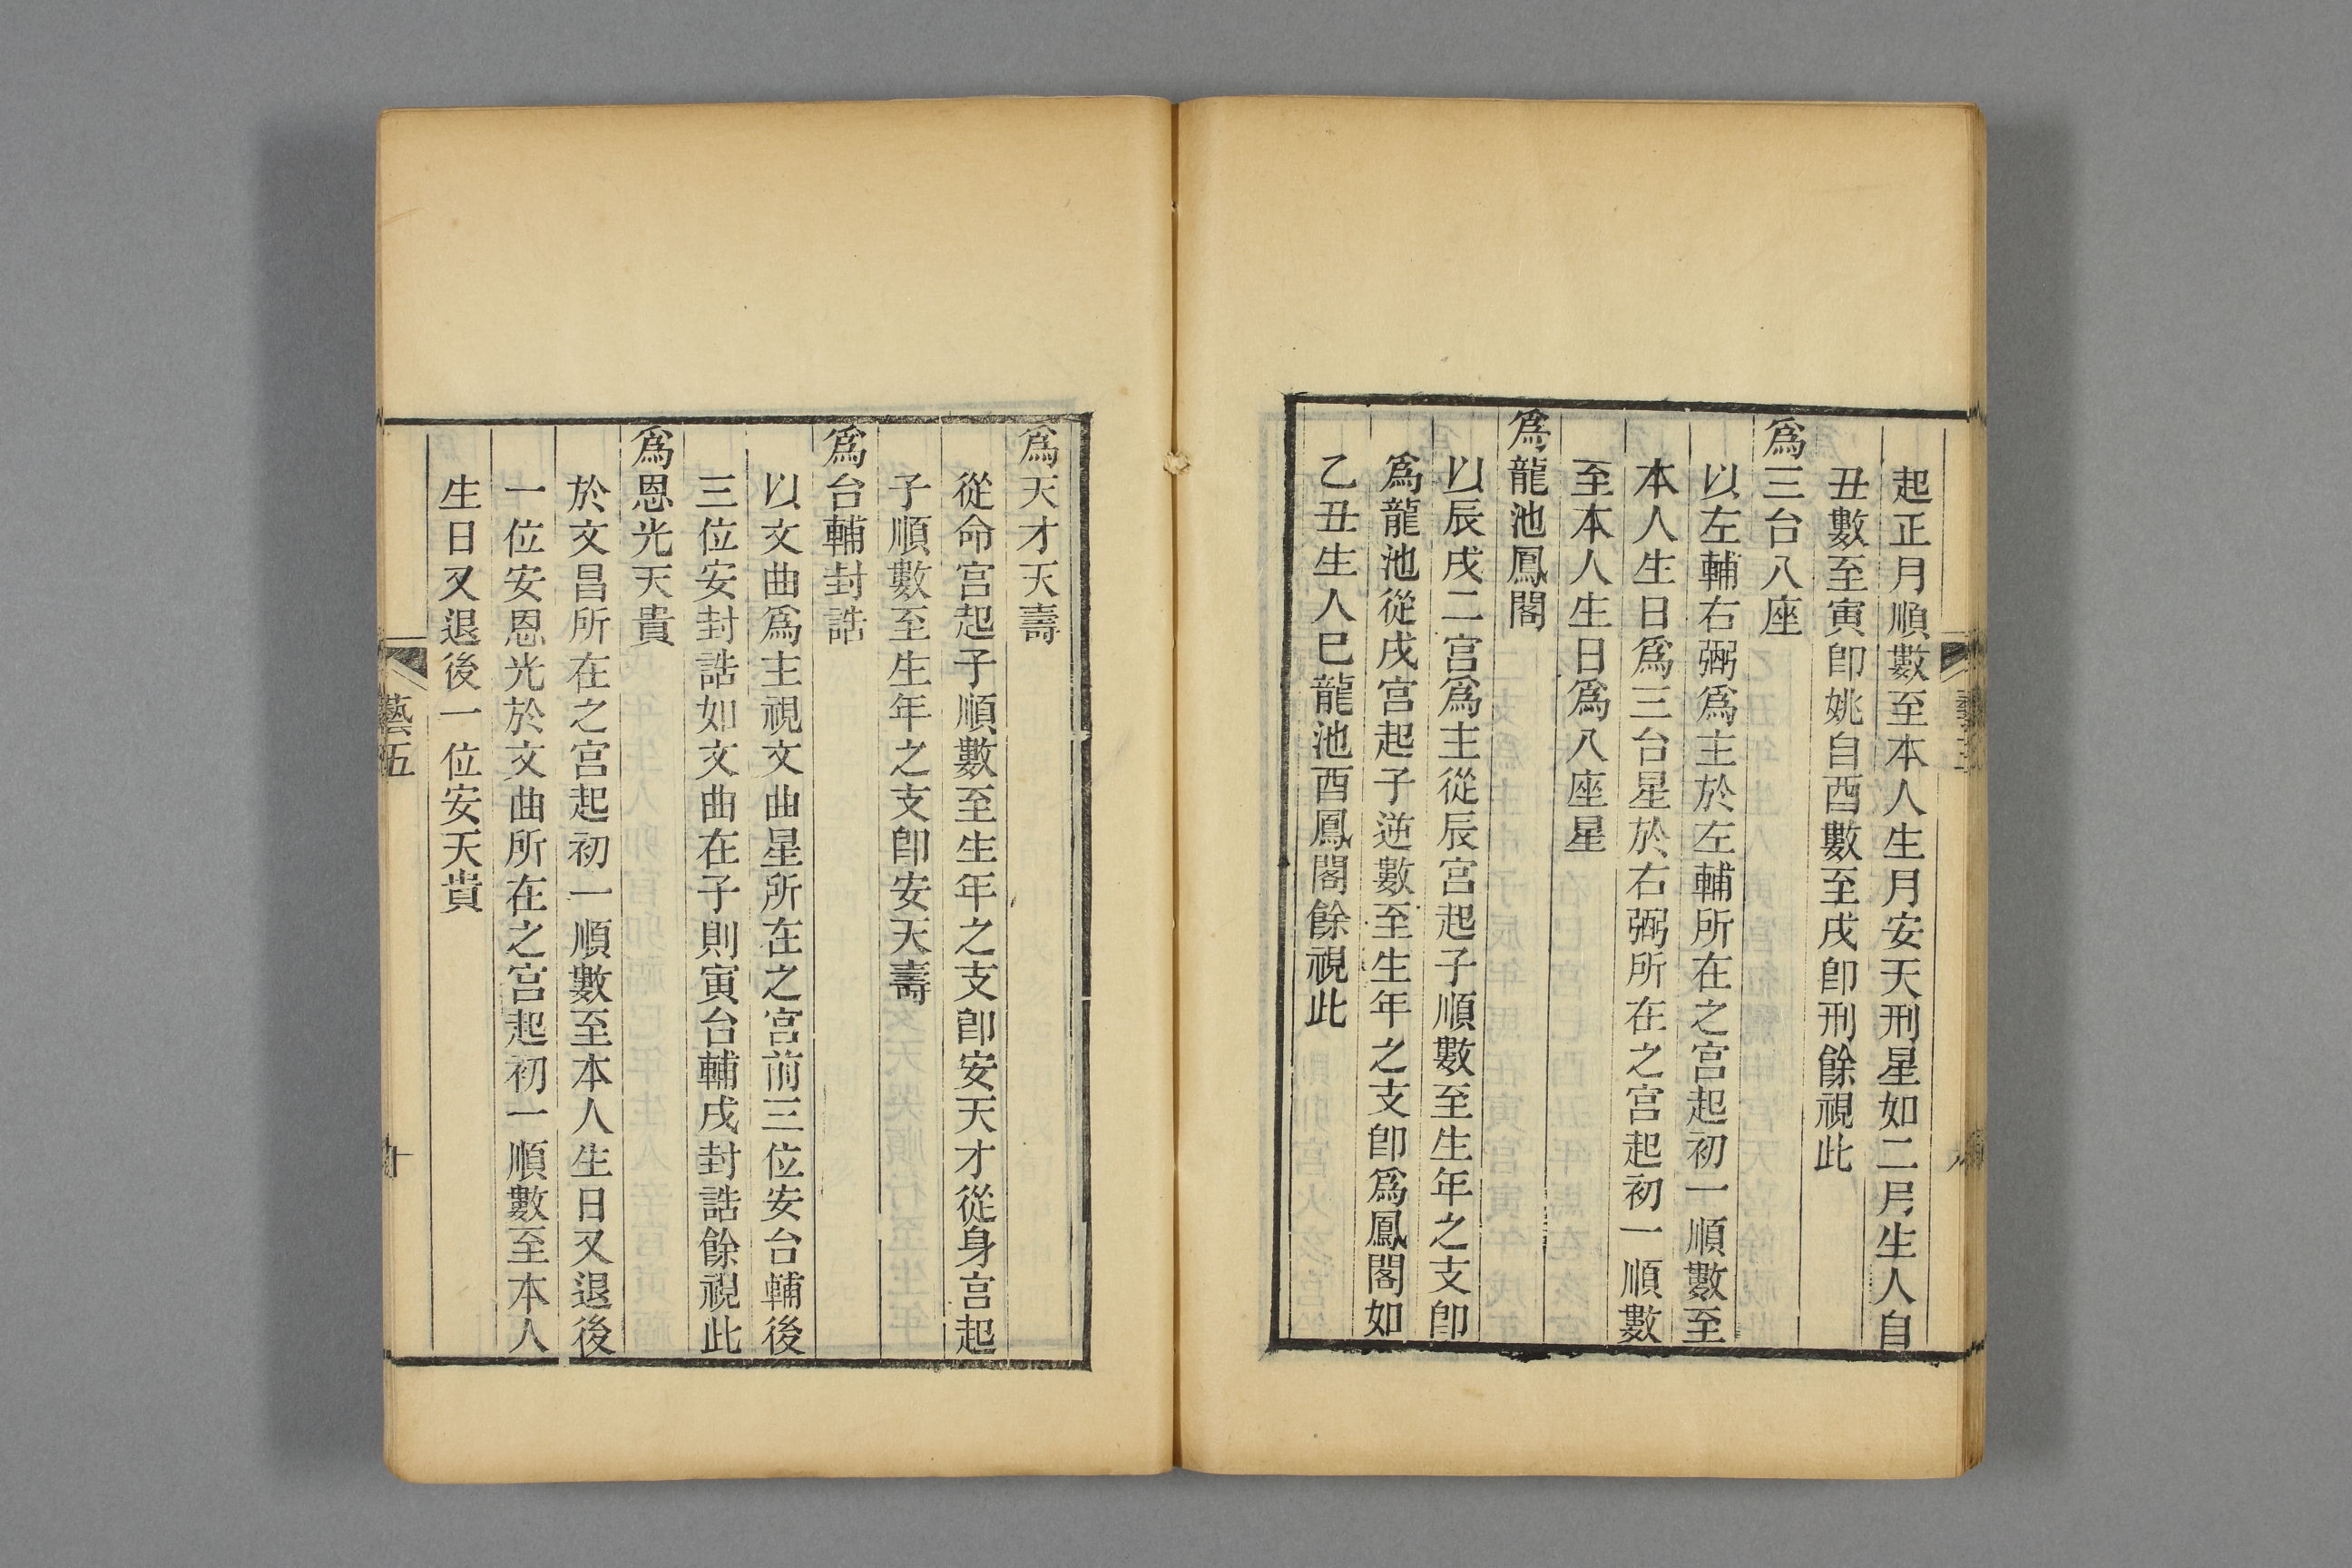 起正月順數至本人生月安天刑星如二月生人自
丑數至寅卽姚自酉數至戌卽刑餘視此
爲三台八座
以左輔右弼爲主於左輔所在之宮起初一順數至
本人生日爲三台星於右弼所在之宮起初一順數
至本人生日爲八座星
爲龍池鳳閣
以辰戌二宮爲主從辰宮起子順數至生年之支卽
爲龍池從戌宮起子逆數至生年之支卽爲鳳閣如
乙丑生人巳龍池酉鳳閣餘視此
爲天才天壽
從命宮起子順數至生年之支卽安天才從身宮起
子順數至生年之支卽安天壽
爲台輔封誥
以文曲爲主視文曲星所在之宮前三位安台輔後
三位安封誥如文曲在子則寅台輔戌封誥餘視此
爲恩光天貴
於文昌所在之宮起初一順數至本人生日又退後
一位安恩光於文曲所在之宮起初一順數至本人
生日又退後一位安天貴
藝五
十